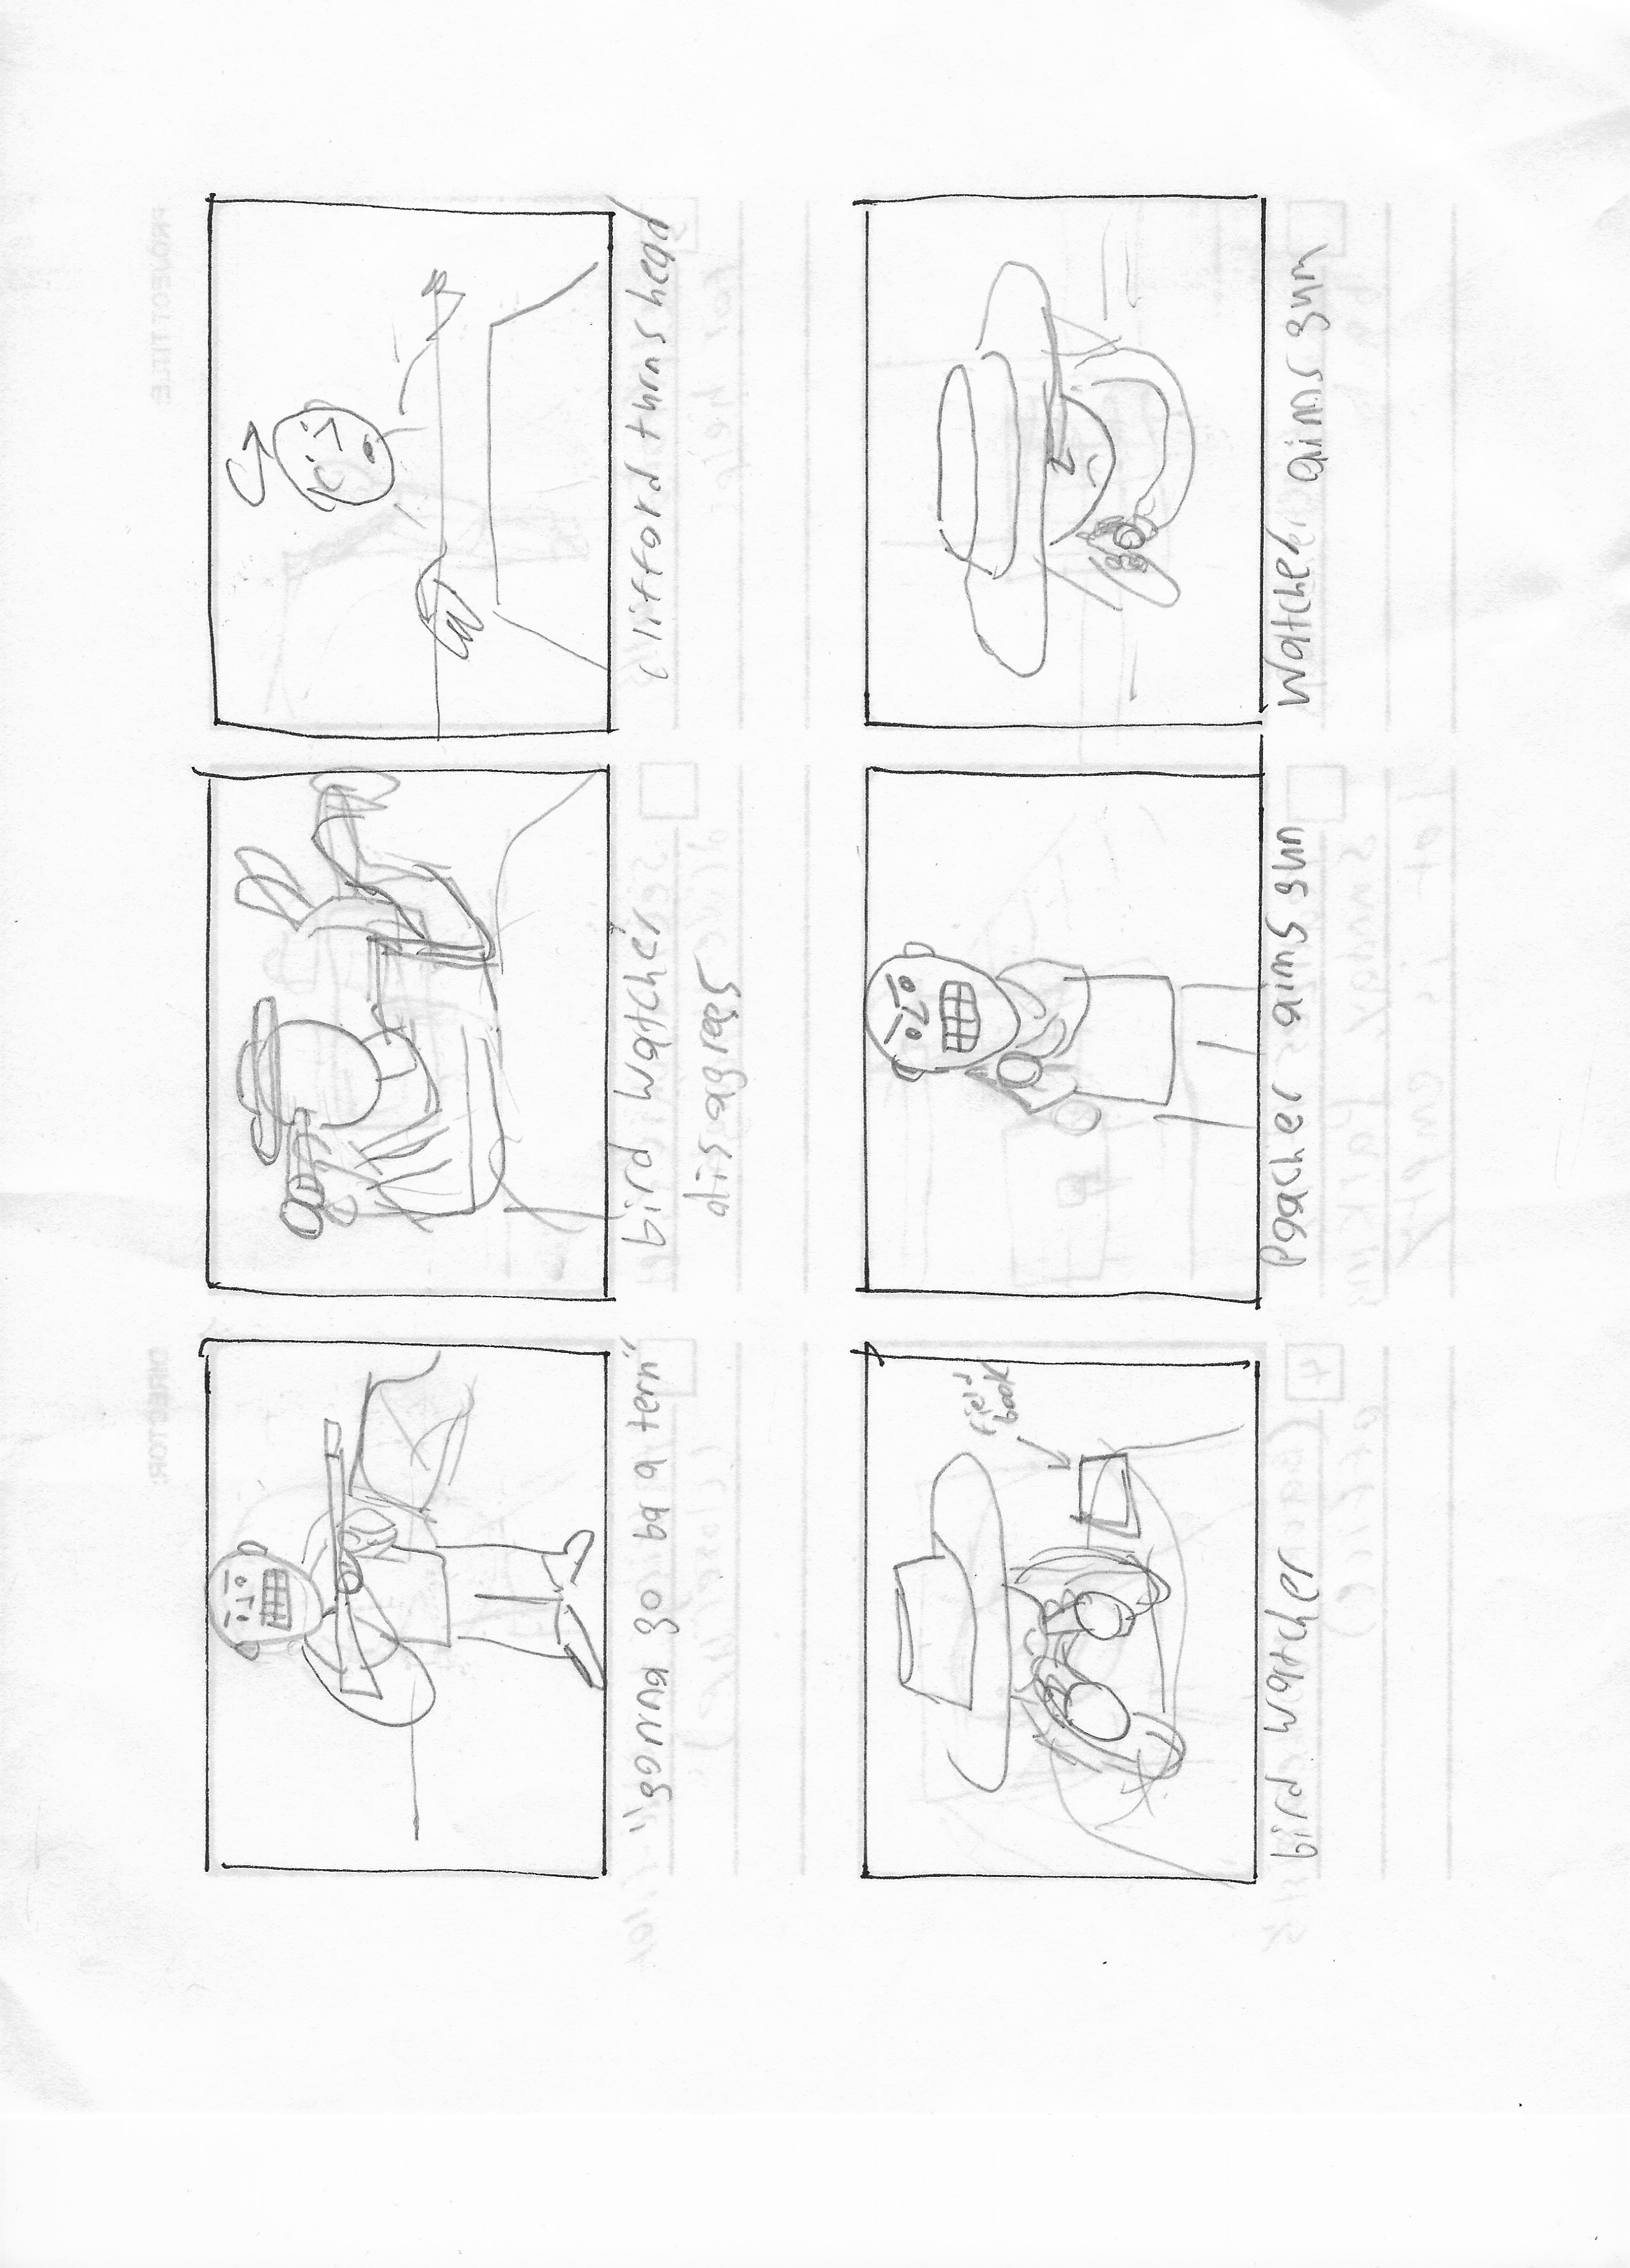 "gonna go be a tern"
bird watcher
disagrees
clifford turns head
field
book
bird watcher
Poacher aims gun
Watcher aims gun